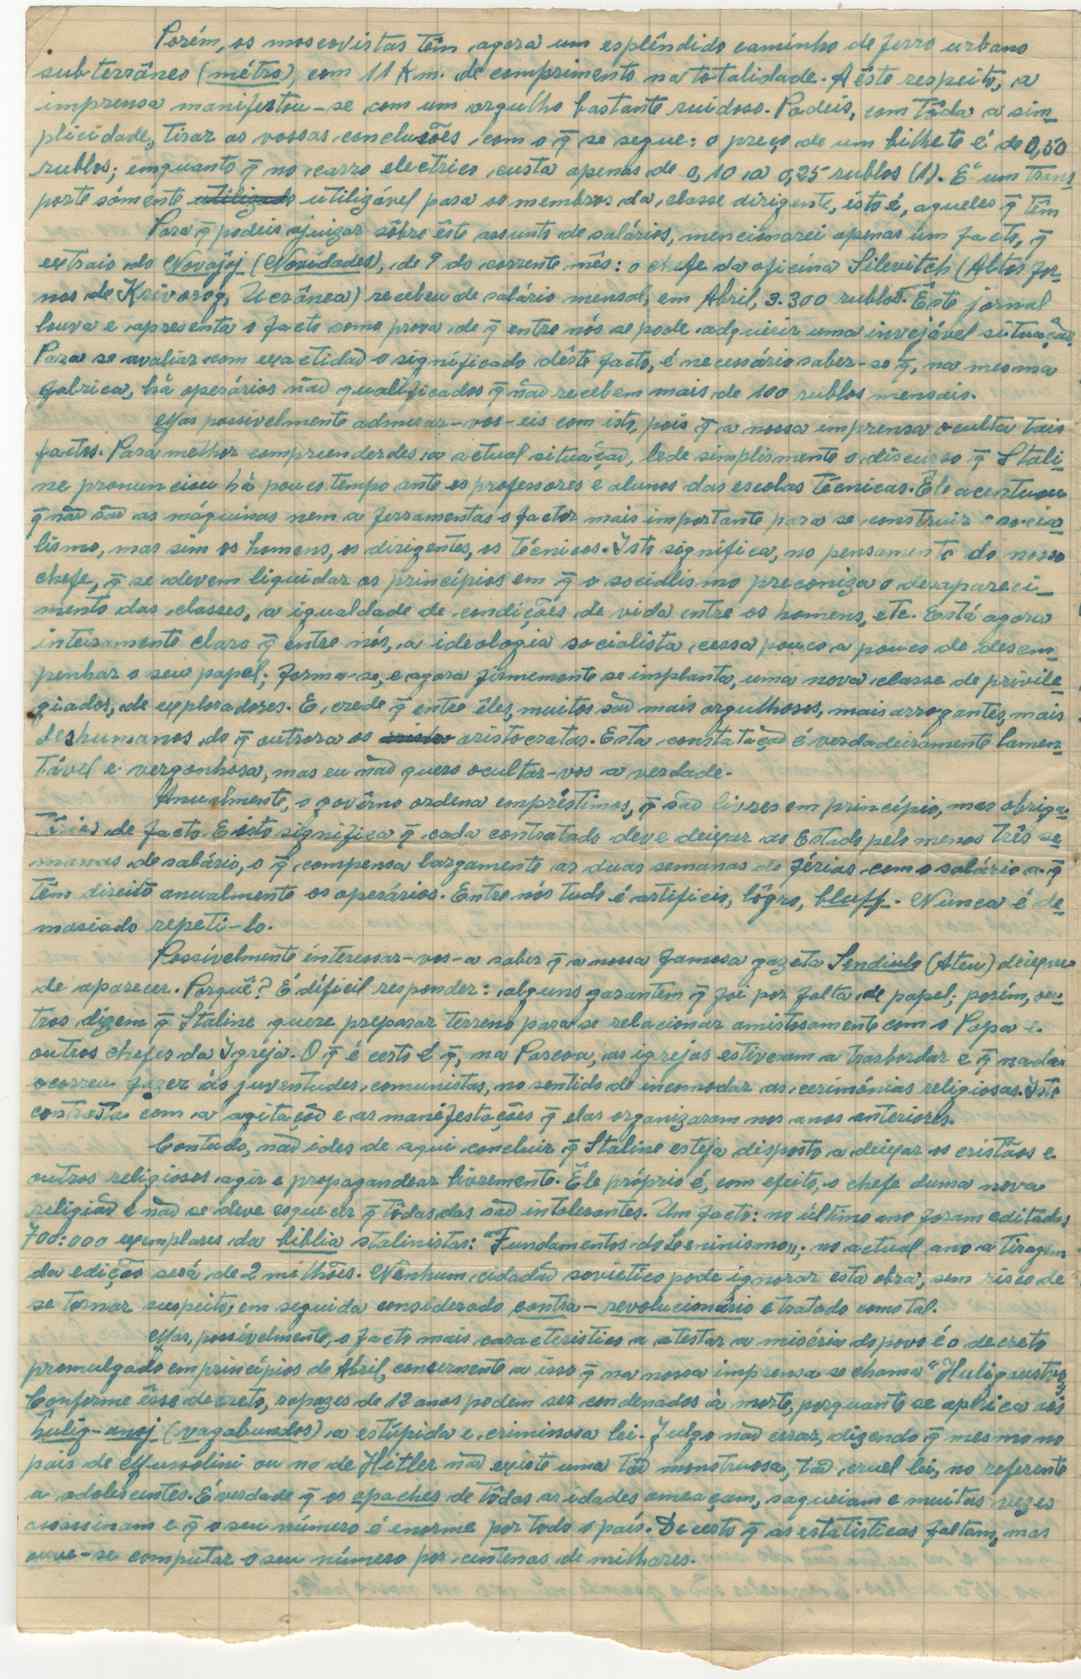 Porém, os moscovistas têm agora um esplêndido caminho de ferro urbano
subterrâneo (métro), com 11 Km. de comprimento na totalidade. A êste respeito, a
imprensa manifestou-se com um orgulho bastante ruidoso. Podeis, com tôda a sim_
plicidade, tirar as vossas conclusões com o q̃ se segue: o preço de um bilhete é de 0,50
rublos; emquanto q̃ no carro electrico custa apenas de 0,10 a 0,25 rublos (1). É um trans_
porte sómente utilizado utilizável para os membros da classe dirigente, isto é, aqueles q̃ têm
Para q̃ podeis ajuizar sôbre êste assunto de salários, mencionarei apenas um facto, q̃
extraio do Novajoj (Novidades), de 9 do corrente mês: o chefe da oficina Silevitch (Altos For_
nos de Krivorog, Ucrânea) recebeu de salário mensal, em Abril, 3.300 rublos. Êste jornal
louva e apresenta o facto como prova de q̃ entre nós se pode adquirir uma invejável situação.
Para se avaliar com exactidão o significado dêste facto, é necessário saber-se q̃, na mesma
fabrica, há operários não qualificados q̃ não recebem mais de 100 rublos mensais.
Mas possivelmente admirar-vos-eis com isto, pois q̃ a nossa imprensa oculta tais
factos. Para melhor compreenderdes a actual situação, lede simplismente o discurso q̃ Stali_
ne pronunciou há pouco tempo ante os professores e alunos das escolas técnicas. Êle acentuou
q̃ não são as máquinas nem a ferramentas o factor mais importante para se construir o socia_
lismo, mas sim os homens, os dirigentes, os técnicos. Isto significa, no pensamento do nosso
chefe, q̃ se devem liquidar os princípios em q̃ o socialismo preconiza o desapareci_
mento das classes, a igualdade de condições de vida entre os homens, etc. Está agora
inteiramente claro q̃ entre nós, a ideologia socialista cessa pouco a pouco de desem_
penhar o seu papel; forma-se, e agora firmemente se implanta, uma nova classe de privile_
giados, de exploradores. E, crede q̃ entre êles, muitos são mais orgulhosos, mais arrogantes, mais
deshumanos do q̃ outrora os aristocratas. Esta constatação é verdadeiramente lamen_
tável e vergonhosa, mas eu não quero ocultar-vos a verdade.
Anualmente, o govêrno ordena empréstimos, q̃ são livres em princípio, mas obriga_
tórios de facto. E isto significa q̃ cada contratado deve deixar ao Estado pelo menos três se_
manas de salário, o q̃ compensa largamente as duas semanas de férias com o salário a q̃
têm direito anualmente os operários. Entre nós tudo é artificio, lôgro, bluff. Nunca é de_
masiado repeti-lo.
Possívelmente interessar-vos-a saber q̃ a nossa famosa gazeta Sendiulo (Ateu) deixou
de aparecer. Porquê? É díficil responder: alguns garantem q̃ foi por falta de papel; porém, ou_
tros dizem q̃ Staline quere preparar terreno para se relacionar amistosamente com o Papa e
outros chefes da Igreja. O q̃ é certo é q̃, na Pascoa, as igrejas estiveram a trasbordar e q̃ nada
ocorreu fazer ás juventudes comunistas, no sentido de incomodar as cerimónias religiosas. Isto
contrasta com a agitação e as manifestações q̃ elas organizaram nos anos anteriores.
Contudo, não ides de aqui concluir q̃ Staline esteja disposto a deixar os cristãos e
outros religiosos agir e propagandear livremente. Êle próprio é, com efeito, o chefe duma nova
religião e não se deve esquecer q̃ tôdas elas são intolerantes. Um facto: no último ano foram editados
700:000 exemplares da biblia stalinista: "Fundamentos do Leninismo„; no actual ano a tiragem
da edição será de 2 milhões. Nenhum cidadão sovietico pode ignorar esta obra, sem risco de
se tornar suspeito, em seguida considerado contra-revolucionário e tratado como tal.
Mas, possívelmente, o facto mais caracteristico a atestar a miséria do povo é o decreto
promulgado em princípios de Abril, concernente a isso q̃ na nossa imprensa se chama "Huliganstvo„
Conforme êsse decreto, rapazes de 12 anos podem ser condenados à morte, porquanto se aplica aos
hulig-anoj (vagabundos) a estúpida e criminosa lei. Julgo não errar, dizendo q̃ mesmo no
pais de Mussolini ou no de Hitler não existe uma tão monstruosa, tão cruel lei, no referente
a adolescentes. É verdade q̃ os apaches de tôdas as idades ameaçam, saqueiam e muitas vezes
assassinam e q̃ o seu número é enorme por todo o país. Decerto q̃ as estatisticas faltam, mas
ouve-se computar o seu número por centenas de milhares.